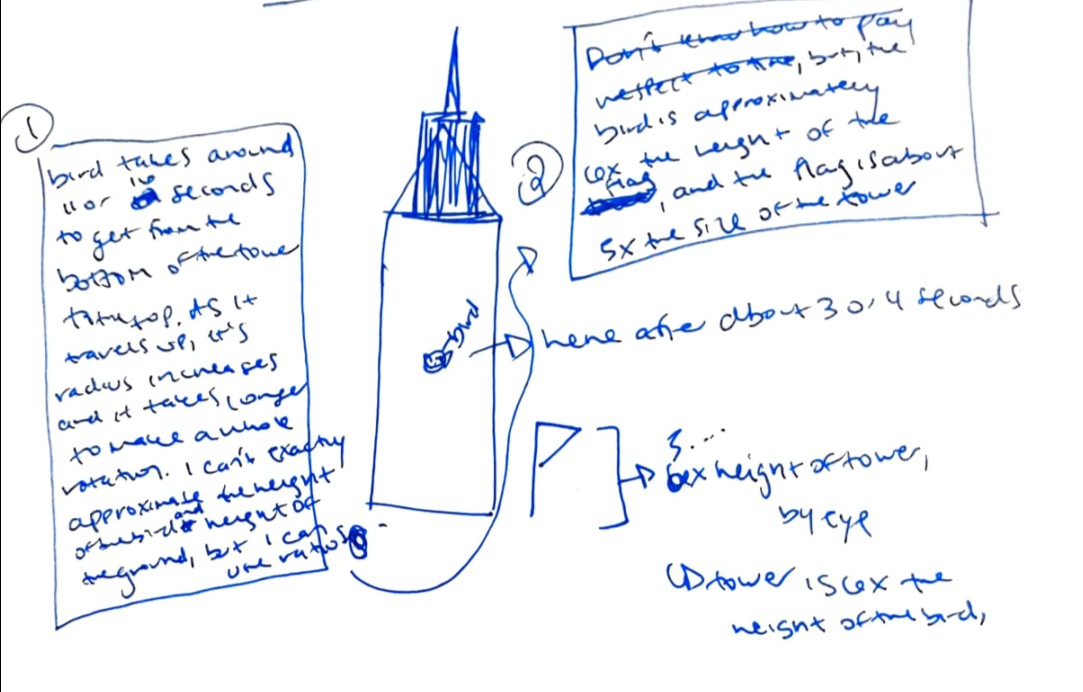 ①
bird takes around
11 or 10 seconds
to get from the
bottom of the tower
to the top. As it
travels up, it's
radius increases
and it takes longer
to make a whole
rotation. I can't exactly
approximate the height
of the bird and height of
the ground, but I can
use ratios
bird
②
Don't know how to pay
respect to the, but, the
bird is approximately
6x the height of the
flag, and the flag is about
5x the size of the tower
here after about 3 or 4 seconds
5...
6x height of tower,
by eye
tower is 6x the
height of the bird,